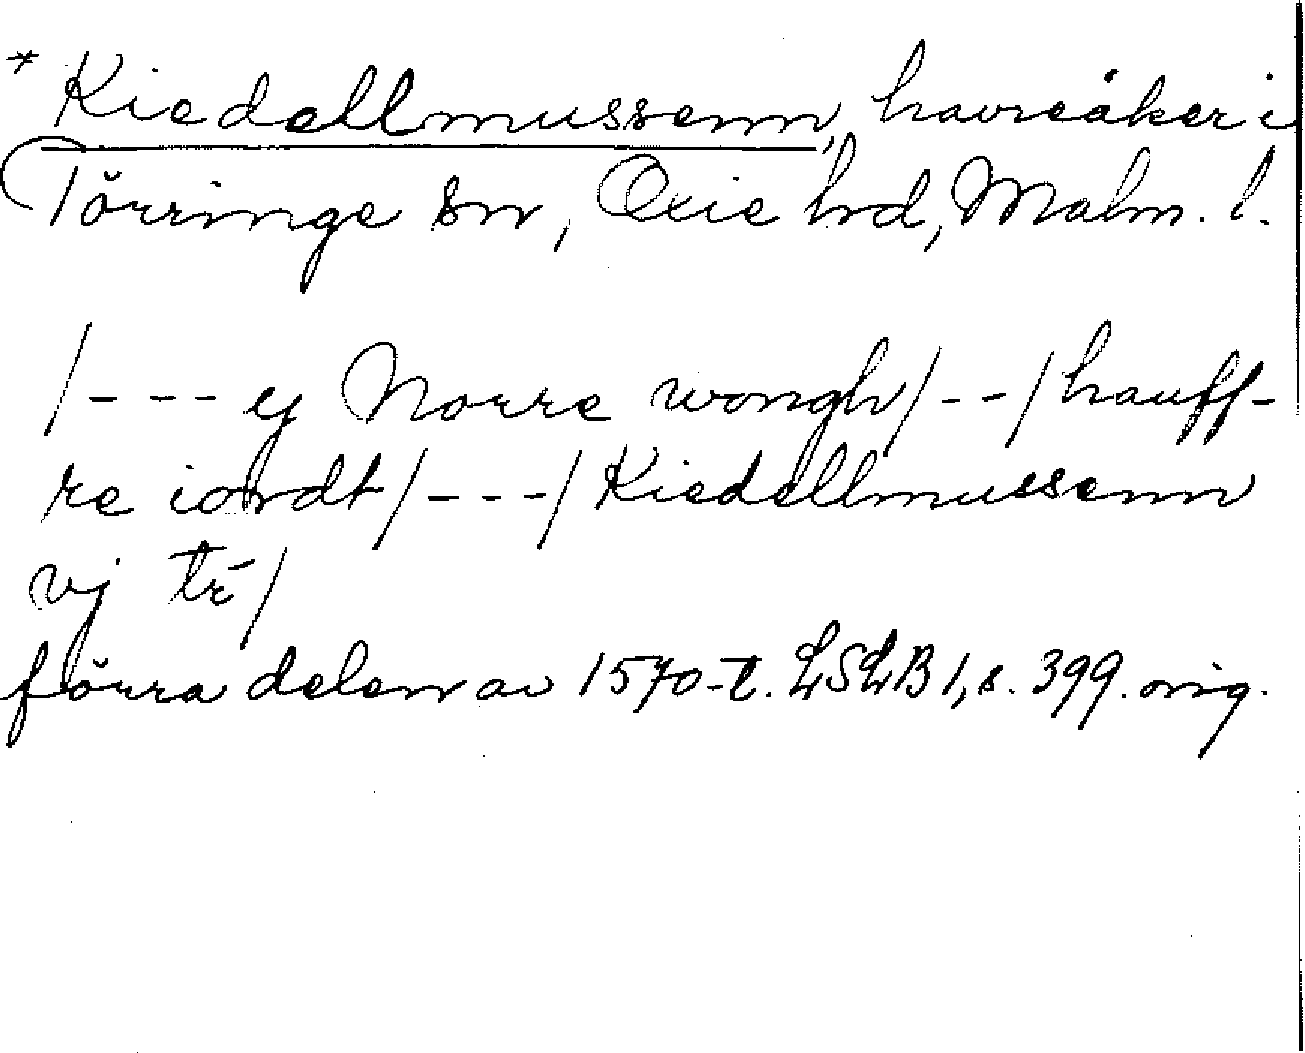 * Kiedellmussenn, havreåker i
Törringe sn, Oxie hrd, Malm. l.
/--- ej Norre wongh/--/hauff-
re iordt/---/Kiedellmussenn
vj tr̄/
förra delen av 1570-t. LSLB 1, s. 399. orig.